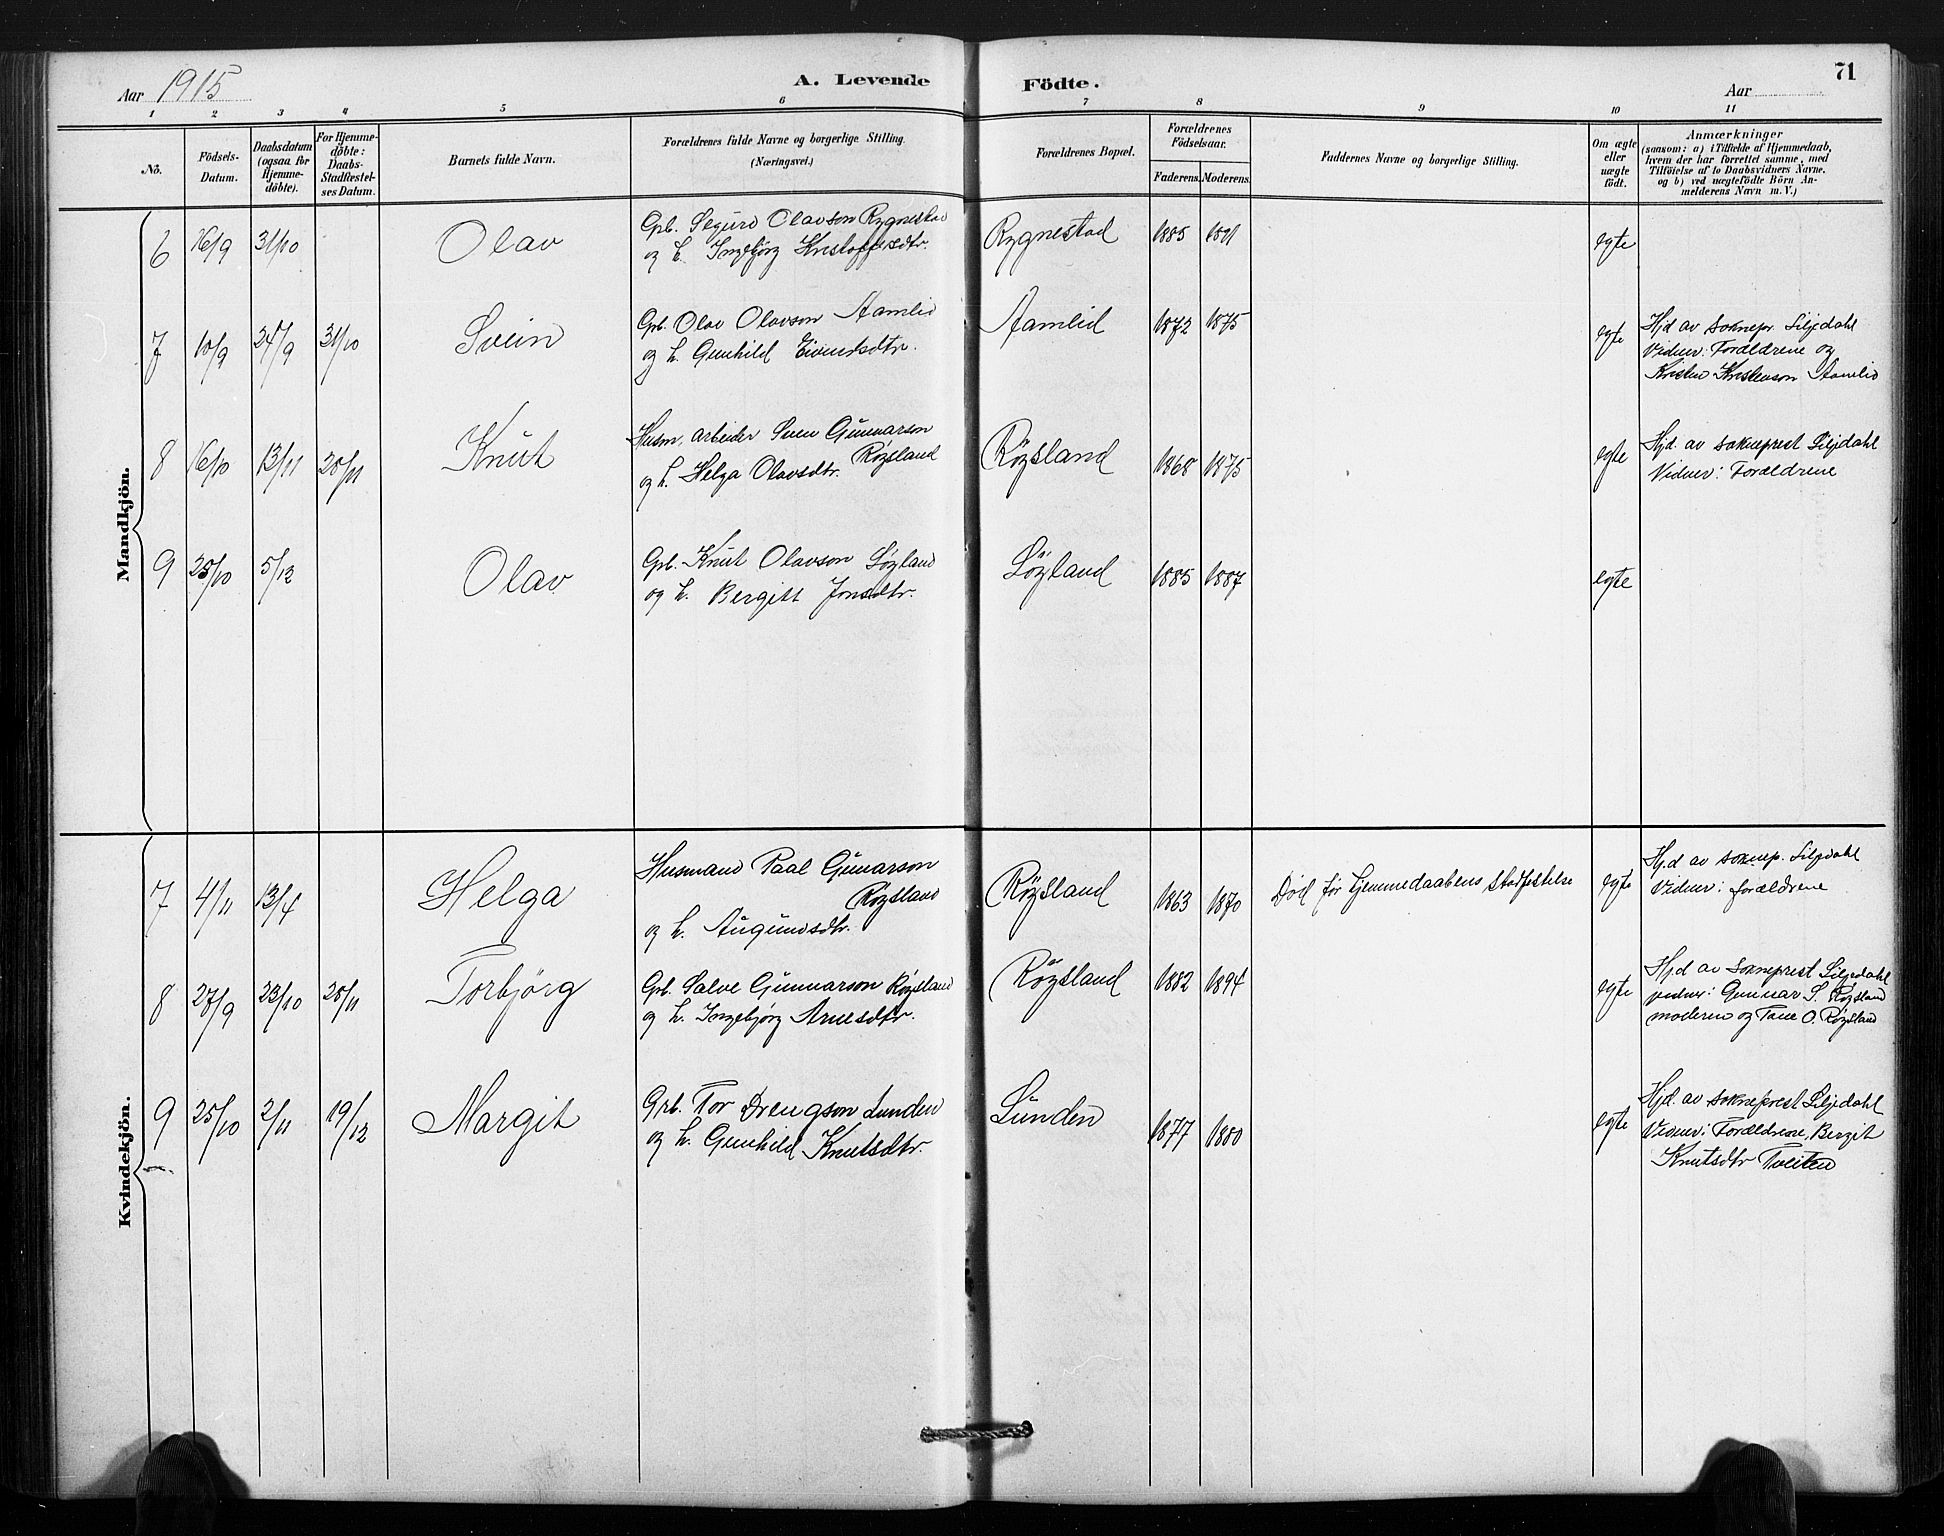 Aar 1915
A. Levende Födte.
Aar
71
1 2 3 4 5 6 7 8 9 10 11
No.
Födsels-Datum.
Daabsdatum (ogsaa for Hjemmedöbte).
For Hjemmedöbte: Daabs-Stadfæstelses Datum.
Barnets fulde Navn.
Forældrenes fulde Navne og borgerlige Stilling. (Næringsvei.)
Forældrenes Bopæl.
Forældrenes Födselsaar.
Faderens. Moderens.
Faddernes Navne og borgerlige Stilling.
Om ægte eller uægte födt.
Anmærkninger
(saasom: a) i Tilfælde af Hjemmedaab,
hvem der har forrettet samme, med
Tilföielse af to Daabsvidners Navne,
og b) ved uægtefödte Börn An-
melderens Navn m. V.)
Mandkjön.
6 16/9 31/10 Olav
Gbr. Sigurd Olavson Rygnestad
og h. Ingebjørg Kristoffersdtr.
Rygnestad 1885 1891 egte
7 10/9 24/9 31/10 Svein
Gbr. Olav Olavson Aamlid
og h. Gunhild Eivindsdtr.
Aamlid 1872 1875 egte
Hjd av soknepr. Liljedahl
Vidner: Forældrene og
Kristen Kristenson Aamlid
8 16/10 13/11 20/11 Knut
Husm, arbeider Sven Gunnarson
Røysland
og h. Helga Olavsdtr.
Røysland 1868 1875 egte
Hjd. av sokneprest Liljedahl
Vidner: Forældrene
9 25/10 5/12 Olav
Gbr. Knut Olavson Løyland
og h. Bergitt Jonsdtr.
Løyland 1885 1887 egte
Kvindekjön.
7 4/11 13/4 Helga
Husmand Paal Gunarson
Røysland
og h. Augundsdtr.
Røysland 1863 1870 Død før hjemmedaabens stadfestelse egte
Hj.d av soknep. Liljedahl
Vidner: forældrene
8 27/9 23/10 20/11 Torbjørg
Gbr. Salve Gunnarson Røysland
og h. Ingebjørg Arnesdtr.
Røysland 1882 1894 egte
Hjd av sokneprest Liljedahl
vidner: Gunnar S. Røysland
moderen og Tone O. Røysland
9 25/10 2/11 19/12 Margit
Grb. Tor Drengson Lunden
og h. Gunhild Knutsdtr.
Lunden 1877 1880 egte
Hjd. av sokneprest Liljedahl
Vidner: Forældrene, Bergit
Knutsdtr Tveiten